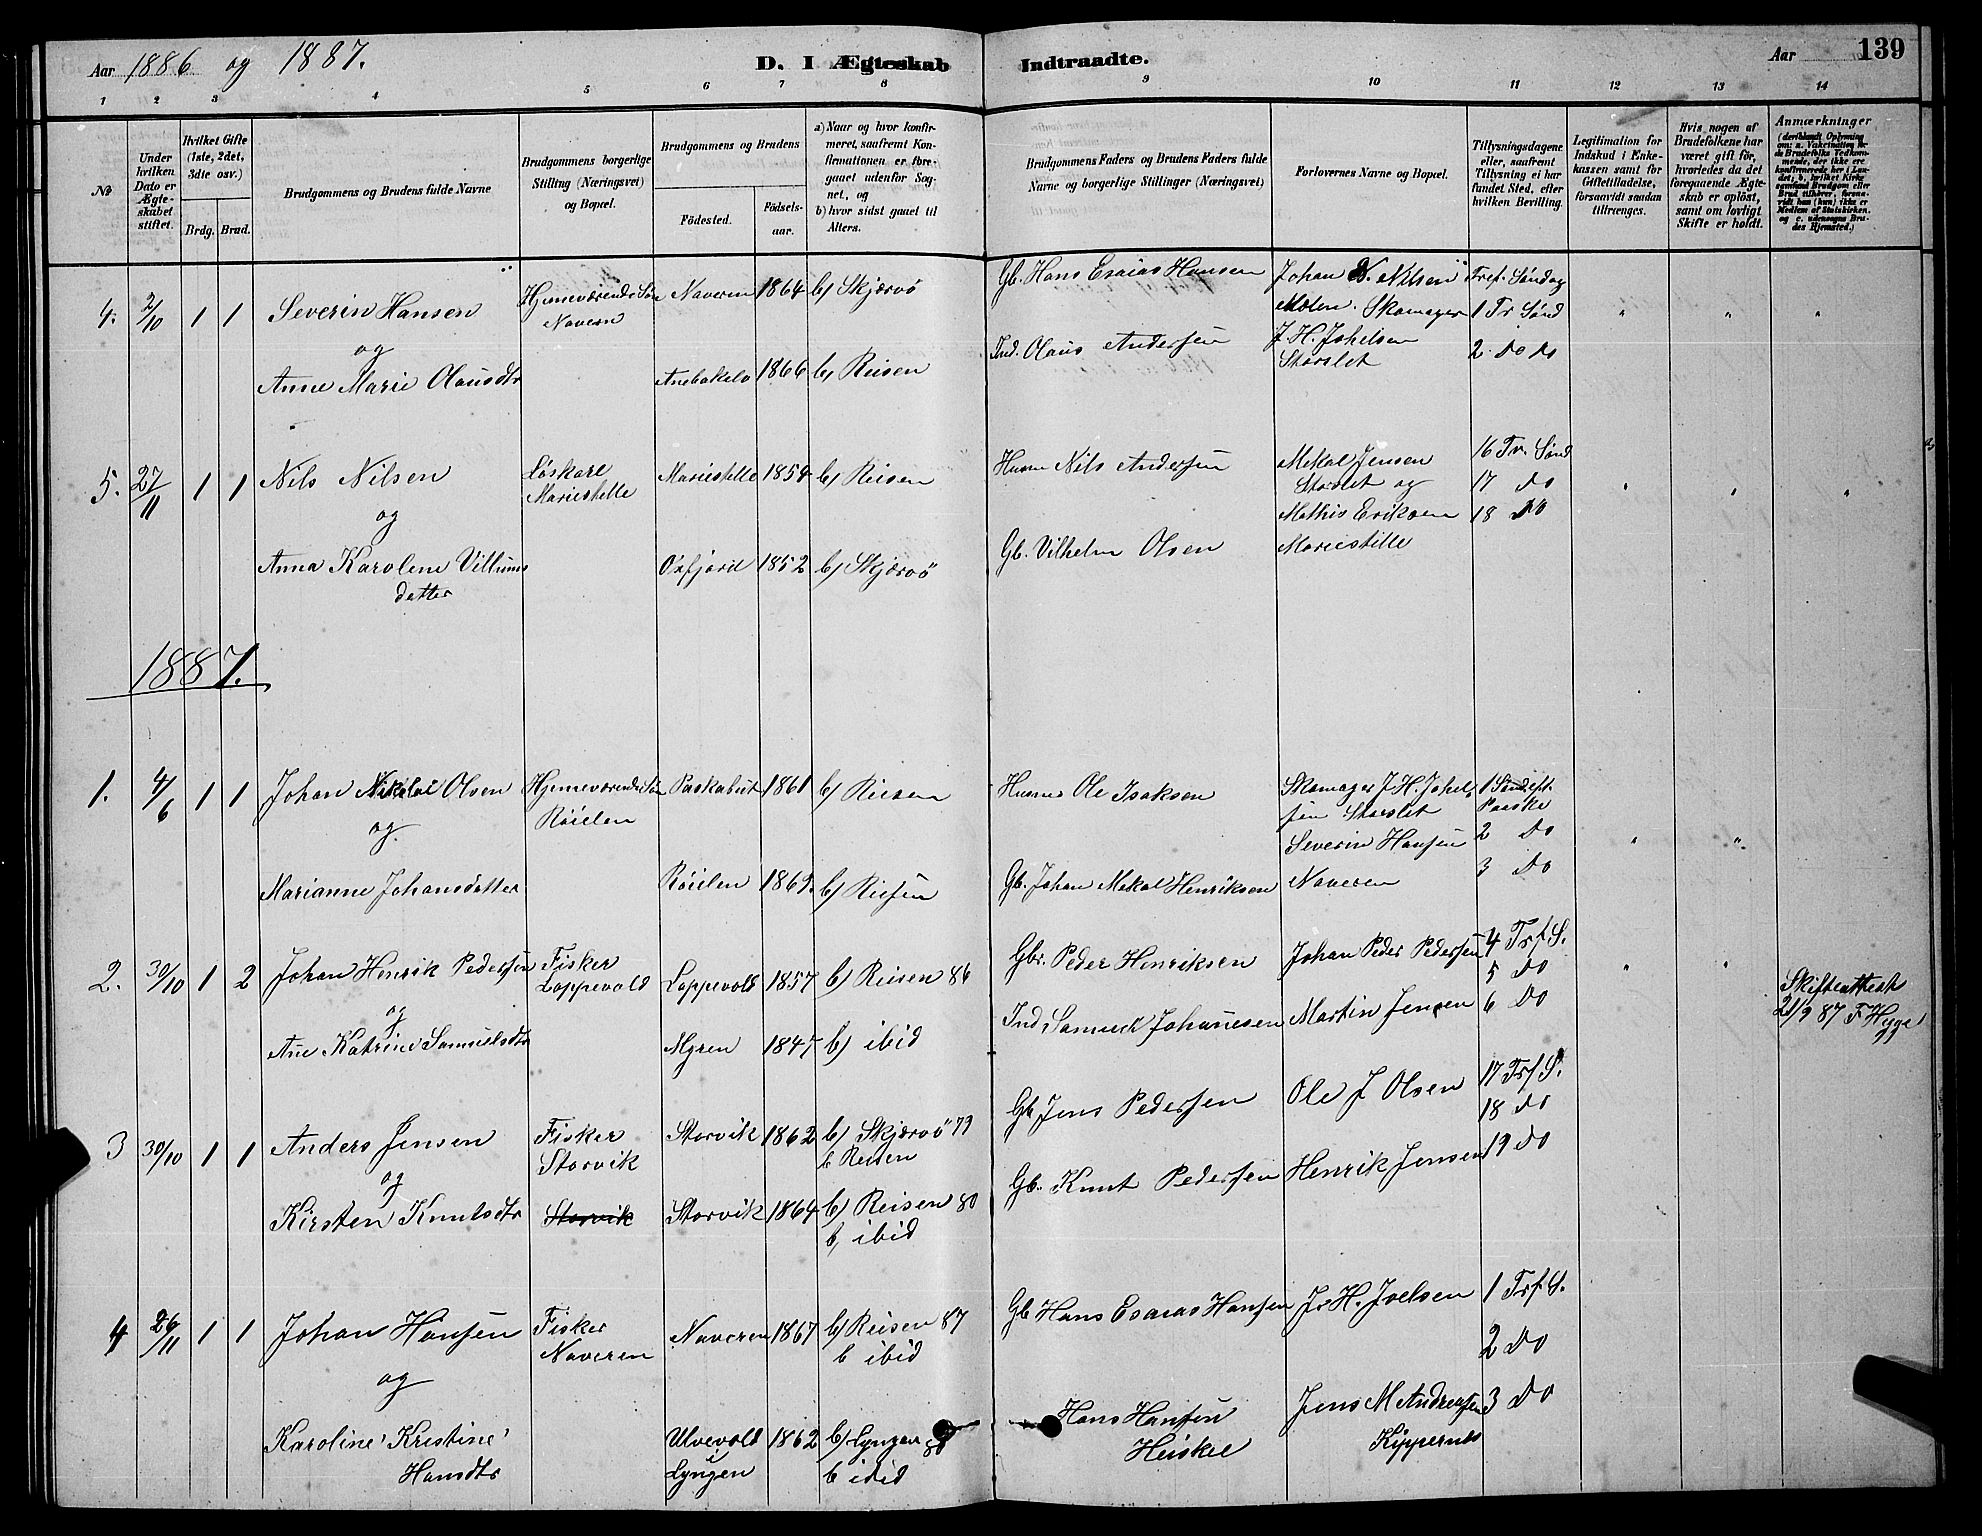 Aar 1886 og 1887.
D. I Ægteskab Indtraadte.
Aar 139
1 2 3 4 5 6 7 8 9 10 11 12 13 14
No
Under hvilken Dato er Ægteskabet stiftet.
Hvilket Gifte (1ste, 2det, 3dte osv.)
Brdg. Brud.
Brudgommens og Brudens fulde Navne
Brudgommens borgerlige Stilling (Næringsvei) og Bopæl.
Brudgommens og Brudens
Fødested. Fødselsaar.
a) Naar og hvor konfirmeret, saafremt Konfirmationen er foregaaet udenfor Sognet, og
b) hvor sidst gaaet til Alters.
Brudgommens Faders og Brudens Faders fulde Navne og borgerlige Stillinger (Næringsvei)
Forlovernes Navne og Bopæl.
Tillysningsdagene eller, saafremt Tillysning ei har fundet Sted, efter hvilken Bevilling.
Legitimation for Indskud i Enkekassen samt for Giftetilladelse, forsaavidt saadan tiltrænges.
Hvis nogen af Brudefolkene har været gift før, hvoriedes da det foregaaende Ægteskab er opløst, samt om lovligt Skifte er holdt.
Anmærkninger (deriblandt Oplysning om: a. Vakcination for de Brudefolks Vedkommende, der ikke er konfirmerede her i Landet; b. hvilket Kirkesamfund Brudgom eller Brud tilhører, forsaavidt han (hun) ikke er Medlem af Statskirken, og c. udensogns Brudes Hjemsted.)
4. 2/10 1 1 Severin Hansen Hjemeværende Søn Navern Naveren 1864 b) Skjærvö Gb. Hans Esaias Hansen Johan N. Nilsen Tref. Søndag
Molen. Skomager 1 Tr Sønd
og
Anne Marie Olausdtr 1866 b) Reisen Ind. Olaus Andersen J. H. Johelsen Storslet 2. Do Do
5. 27/11 1 1 Nils Nilsen Løskarl Mariestelle Mariestelle 1854 b) Reisen Husm Nils Andersen Mekal Jensen Storslet og 16 Tr. Sønd
17 Do
og
Mathis Eriksen 18 Do
Anna Karolene Villums datter Oxfjord 1852 b) Skjærvö Gb. Vilhelm Olsen Mariestille
1887.
1. 4/6 1 1 Johan Nikolai Olsen Hjemeværende Søn Röielen Paskabut 1861 b) Reisen Husm Ole Isaksen Skomager J. H. Johelsen Storslet 1 Sønd. eft. Paaske
og
Severin Hansen 2 Do
Marianne Johansdatter Röielen 1862. b) Reisen Gb. Johan Mekal Henriksen Naveren 3 Do
2. 30/10 1 2 Johan Henrik Pedersen Fisker Loppevold Loppevold 1857 b) Reisen 86 Gbr. Peder Henriksen Johan Peder Pedersen 4 Trf S.
5 Do
og
Ane Katrine Samuelsdtr Myren 1847 b) ibid Ind. Samuel Johanesen Martin Jensen 6 Do Skifteattest 21/9 87 F Hyge
3 30/10 1 1 Anders Jensen Fisker Storvik Storvik 1862 b) Skjærvö 79 b Reisen Gb Jens Pedersen Ole J Olsen 17 Trf S.
18 Do
og
Kirsten Knutsdtr Storvik Storvik 1864 b) Reisen 80 b, ibid Gb. Knut Pedersen Henrik Jensen 19 Do
4 26/11 1 1 Johan Hansen Fisker Naveren Naveren 1867 b) Reisen 87 b ibid Gb Hans Esaias Hansen J. H. Joelsen 1 Trf S.
2 Do
og
Karoline Kristine Hansdtr Ulvevold i Lyngen 1862 b) Lyngen 80 b ibid Hans Hansen Heiskel Jens M Andreasen Kippernes 3 Do